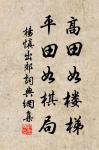 高田如楼梯
平田如棋局
楊慎出郊詞典網集